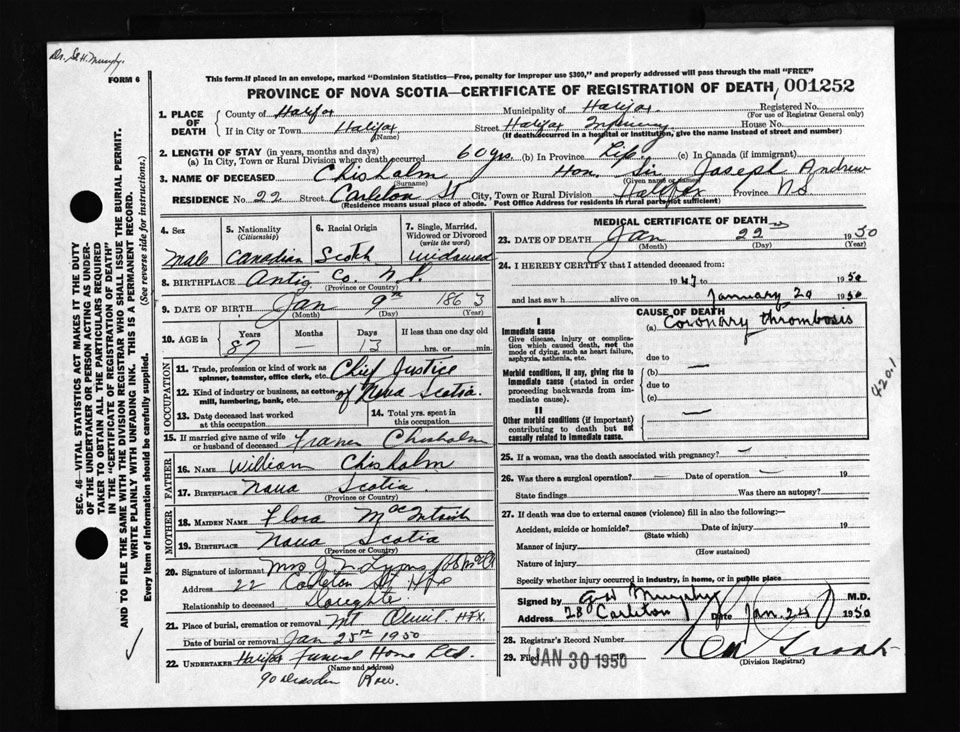 Dr. G.H. Murphy.
FORM 6
SEC. 46—VITAL STATISTICS ACT MAKES IT THE DUTY
OF THE UNDERTAKER OR PERSON ACTING AS UNDER-
TAKER TO OBTAIN ALL THE PARTICULARS REQUIRED
IN THE "CERTIFICATE OF REGISTRATION OF DEATH"
AND TO FILE THE SAME WITH THE DIVISION REGISTRAR WHO SHALL ISSUE THE BURIAL PERMIT.
WRITE PLAINLY WITH UNFADING INK. THIS IS A PERMANENT RECORD.
Every item of information should be carefully supplied. (See reverse side for instructions.)
This form if placed in an envelope, marked "Dominion Statistics—Free, penalty for improper use $300," and properly addressed will pass through the mail "FREE"
PROVINCE OF NOVA SCOTIA—CERTIFICATE OF REGISTRATION OF DEATH, 001252
1. PLACE OF DEATH County of Halifax Municipality of Halifax. Registered No.
(For use of Registrar General only)
If in City or Town Halifax Street Halifax Infirmary House No.
(Name) (If death occurred in a hospital or institution, give the name instead of street and number)
2. LENGTH OF STAY (in years, months and days)
(a) In City, Town or Rural Division where death occurred 60 yrs. (b) In Province Life. (c) In Canada (if immigrant)
3. NAME OF DECEASED Chisholm Hon. Sir Joseph Andrew
(Surname) (Given name or names)
RESIDENCE No. 22 Street Carleton St City, Town or Rural Division Halifax Province N.S.
(Residence means usual place of abode. Post Office Address for residents in rural parts not sufficient)
4. Sex 5. Nationality 6. Racial Origin 7. Single, Married, Widowed or Divorced
(Citizenship) (write the word)
Male Canadian Scotch Widowed
8. BIRTHPLACE Antig. Co. N.S.
(Province or Country)
9. DATE OF BIRTH Jan 9th 1863
(Month) (Day) (Year)
10. AGE in Years Months Days If less than one day old
87 — 13 hrs. or min.
OCCUPATION
11. Trade, profession or kind of work as spinner, teamster, office clerk, etc. Chief Justice
12. Kind of industry or business, as cotton-mill, lumbering, bank, etc. of Nova Scotia.
13. Date deceased last worked at this occupation 14. Total yrs. spent in this occupation
15. If married give name of wife or husband of deceased Frances Chisholm
FATHER
16. NAME William Chisholm
17. BIRTHPLACE Nova Scotia.
(Province or Country)
MOTHER
18. MAIDEN NAME Flora MacIntosh
19. BIRTHPLACE Nova Scotia
(Province or Country)
20. Signature of informant Mrs J. Lyons
Address 22 Carleton St. Hfx
Relationship to deceased Daughter.
21. Place of burial, cremation or removal Mt Olivet. HFX.
Date of burial or removal Jan 25th 1950
22. UNDERTAKER Halifax Funeral Home Ltd.
(Name and address)
90 Dresden Row.
MEDICAL CERTIFICATE OF DEATH
23. DATE OF DEATH Jan 22nd 1950
(Month) (Day) (Year)
24. I HEREBY CERTIFY that I attended deceased from:
1947 1950
and last saw h alive on January 20 1950
CAUSE OF DEATH
I
Immediate cause (a) Coronary thrombosis
Give disease, injury or complication which caused death, not the mode of dying, such as heart failure, asphyxia, asthenia, etc.
due to
Morbid conditions, if any, giving rise to immediate cause (stated in order proceeding backwards from immediate cause). (b) —
due to
(c)
II
Other morbid conditions (if important) contributing to death but not causally related to immediate cause. —
420.1
25. If a woman, was the death associated with pregnancy? —
26. Was there a surgical operation? — Date of operation — 19
State findings Was there an autopsy?
27. If death was due to external causes (violence) fill in also the following:—
Accident, suicide or homicide? Date of injury 19
(State which)
Manner of injury
(How sustained)
Nature of injury
Specify whether injury occurred in industry, in home, or in public place
Signed by G H Murphy M.D.
Address 28 Carleton Date Jan. 24 1950
28. Registrar's Record Number
29. Filed JAN 30 1950 19
(Division Registrar)